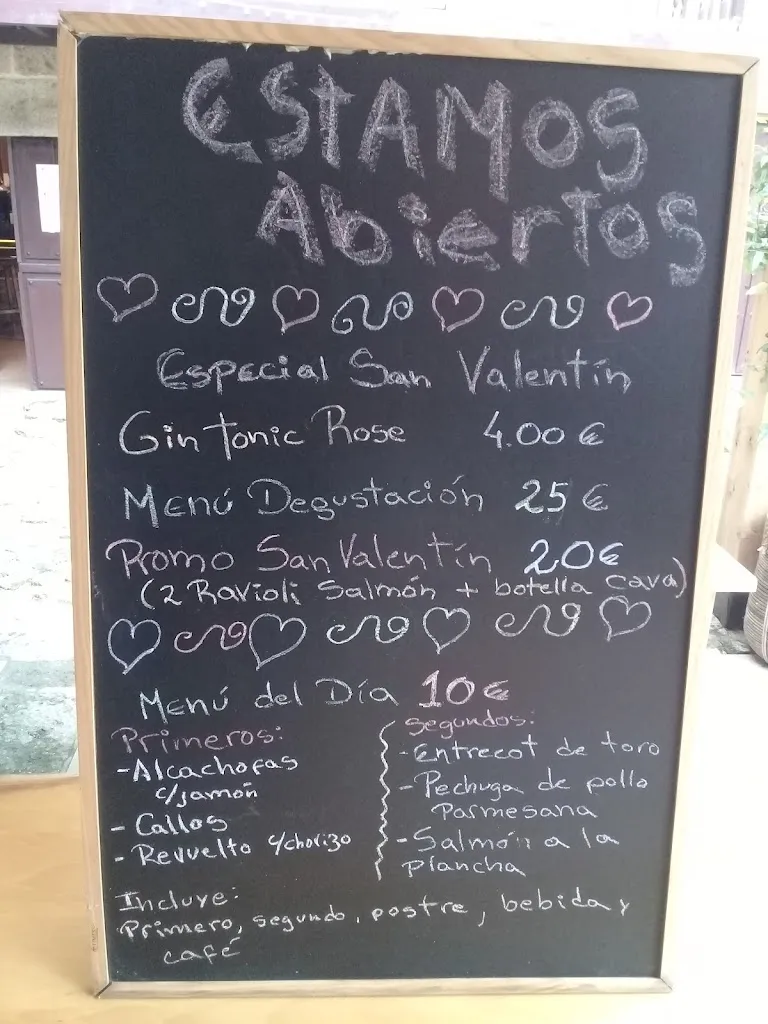 EStAMOS
Abiertos
Especial San Valentín
Gin Tonic Rose 4.00 €
Menú Degustación 25 €
Promo San Valentín 20€
(2 Ravioli Salmón + botella cava)
Menú del Día 10€
Primeros:
-Alcachofas
c/jamón
- Callos
- Revuelto c/chorizo
Segundos:
-Entrecot de toro
- Pechuga de pollo
Parmesana
-Salmón a la
plancha
Incluye:
Primero, segundo, postre, bebida y
café